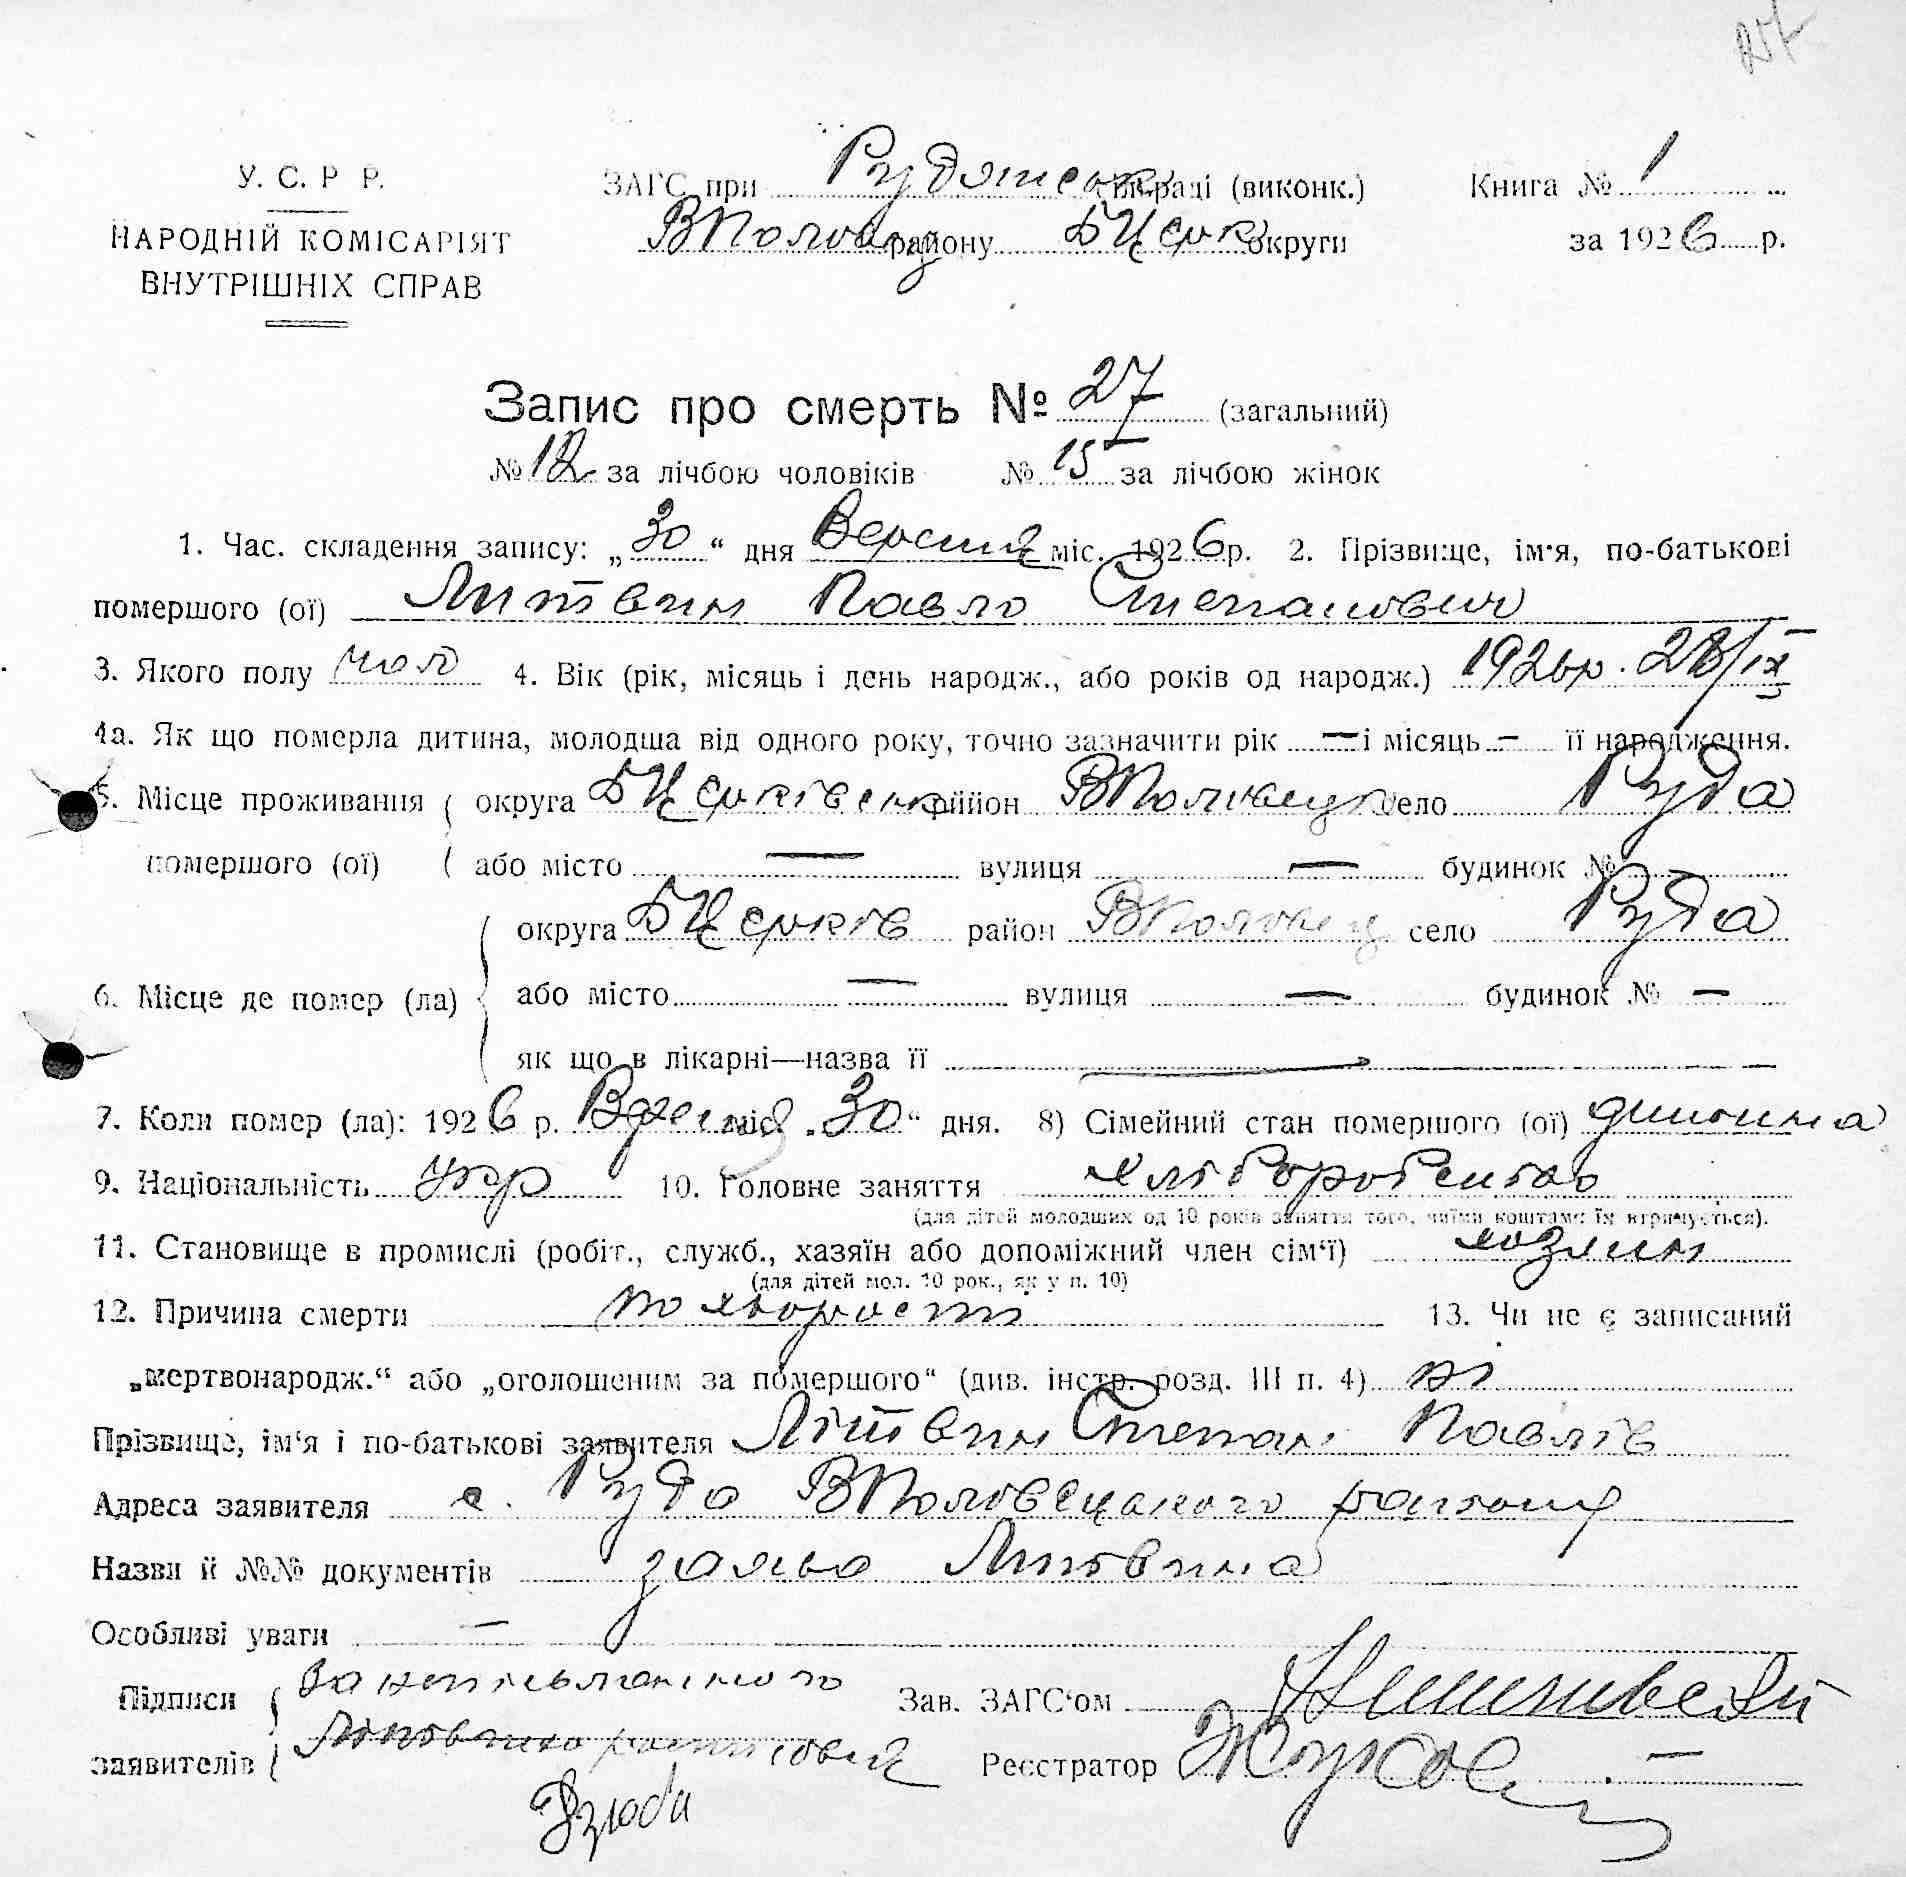 257
У. С. Р. Р.
НАРОДНІЙ КОМІСАРІЯТ
ВНУТРІШНІХ СПРАВ
ЗАГС при Рудянськ сільраді (виконк.)
ВПоловец району БЦерк округи
Книга № 1
за 1926 р.
Запис про смерть № 27 (загальний)
№ 12 за лічбою чоловіків № 15 за лічбою жінок
1. Час. складення запису: „30“ дня Вересня міс. 1926 р. 2. Прізвище, ім'я, по-батькові
помершого (ої) Литвин Павло Степанович
3. Якого полу чол 4. Вік (рік, місяць і день народж., або років од народж.) 1926р. 28/ІХ
4а. Як що померла дитина, молодша від одного року, точно зазначити рік — і місяць — її народження.
5. Місце проживання округа БЦерківськ район ВПоловецк село Руда
помершого (ої) або місто — вулиця — будинок №
округа БЦерків район ВПоловец село Руда
6. Місце де помер (ла) або місто — вулиця — будинок № —
як що в лікарні—назва її —
7. Коли помер (ла): 1926 р. Вересня міс. „30“ дня. 8) Сімейний стан помершого (ої) дитина
9. Національність Укр 10. Головне заняття хліборобство
(для дітей молодших од 10 років заняття того, чиїми коштами їх втримується).
11. Становище в промислі (робіт., служб., хазяїн або допоміжний член сім'ї) хозяин
(для дітей мол. 10 рок., як у п. 10)
12. Причина смерти по хворости 13. Чи не є записаний
„мертвонародж.“ або „оголошеним за помершого“ (див. інстр. розд. III п. 4) ні
Прізвище, ім'я і по-батькові заявителя Літвин Степан Павлів
Адреса заявителя с. Руда ВПоловецького району
Назви й №№ документів заява Литвина
Особливі уваги —
Підписи За неписьменного Зав. ЗАГС'ом
заявителів Литвина росписався Реєстратор Жуков
Дзюба